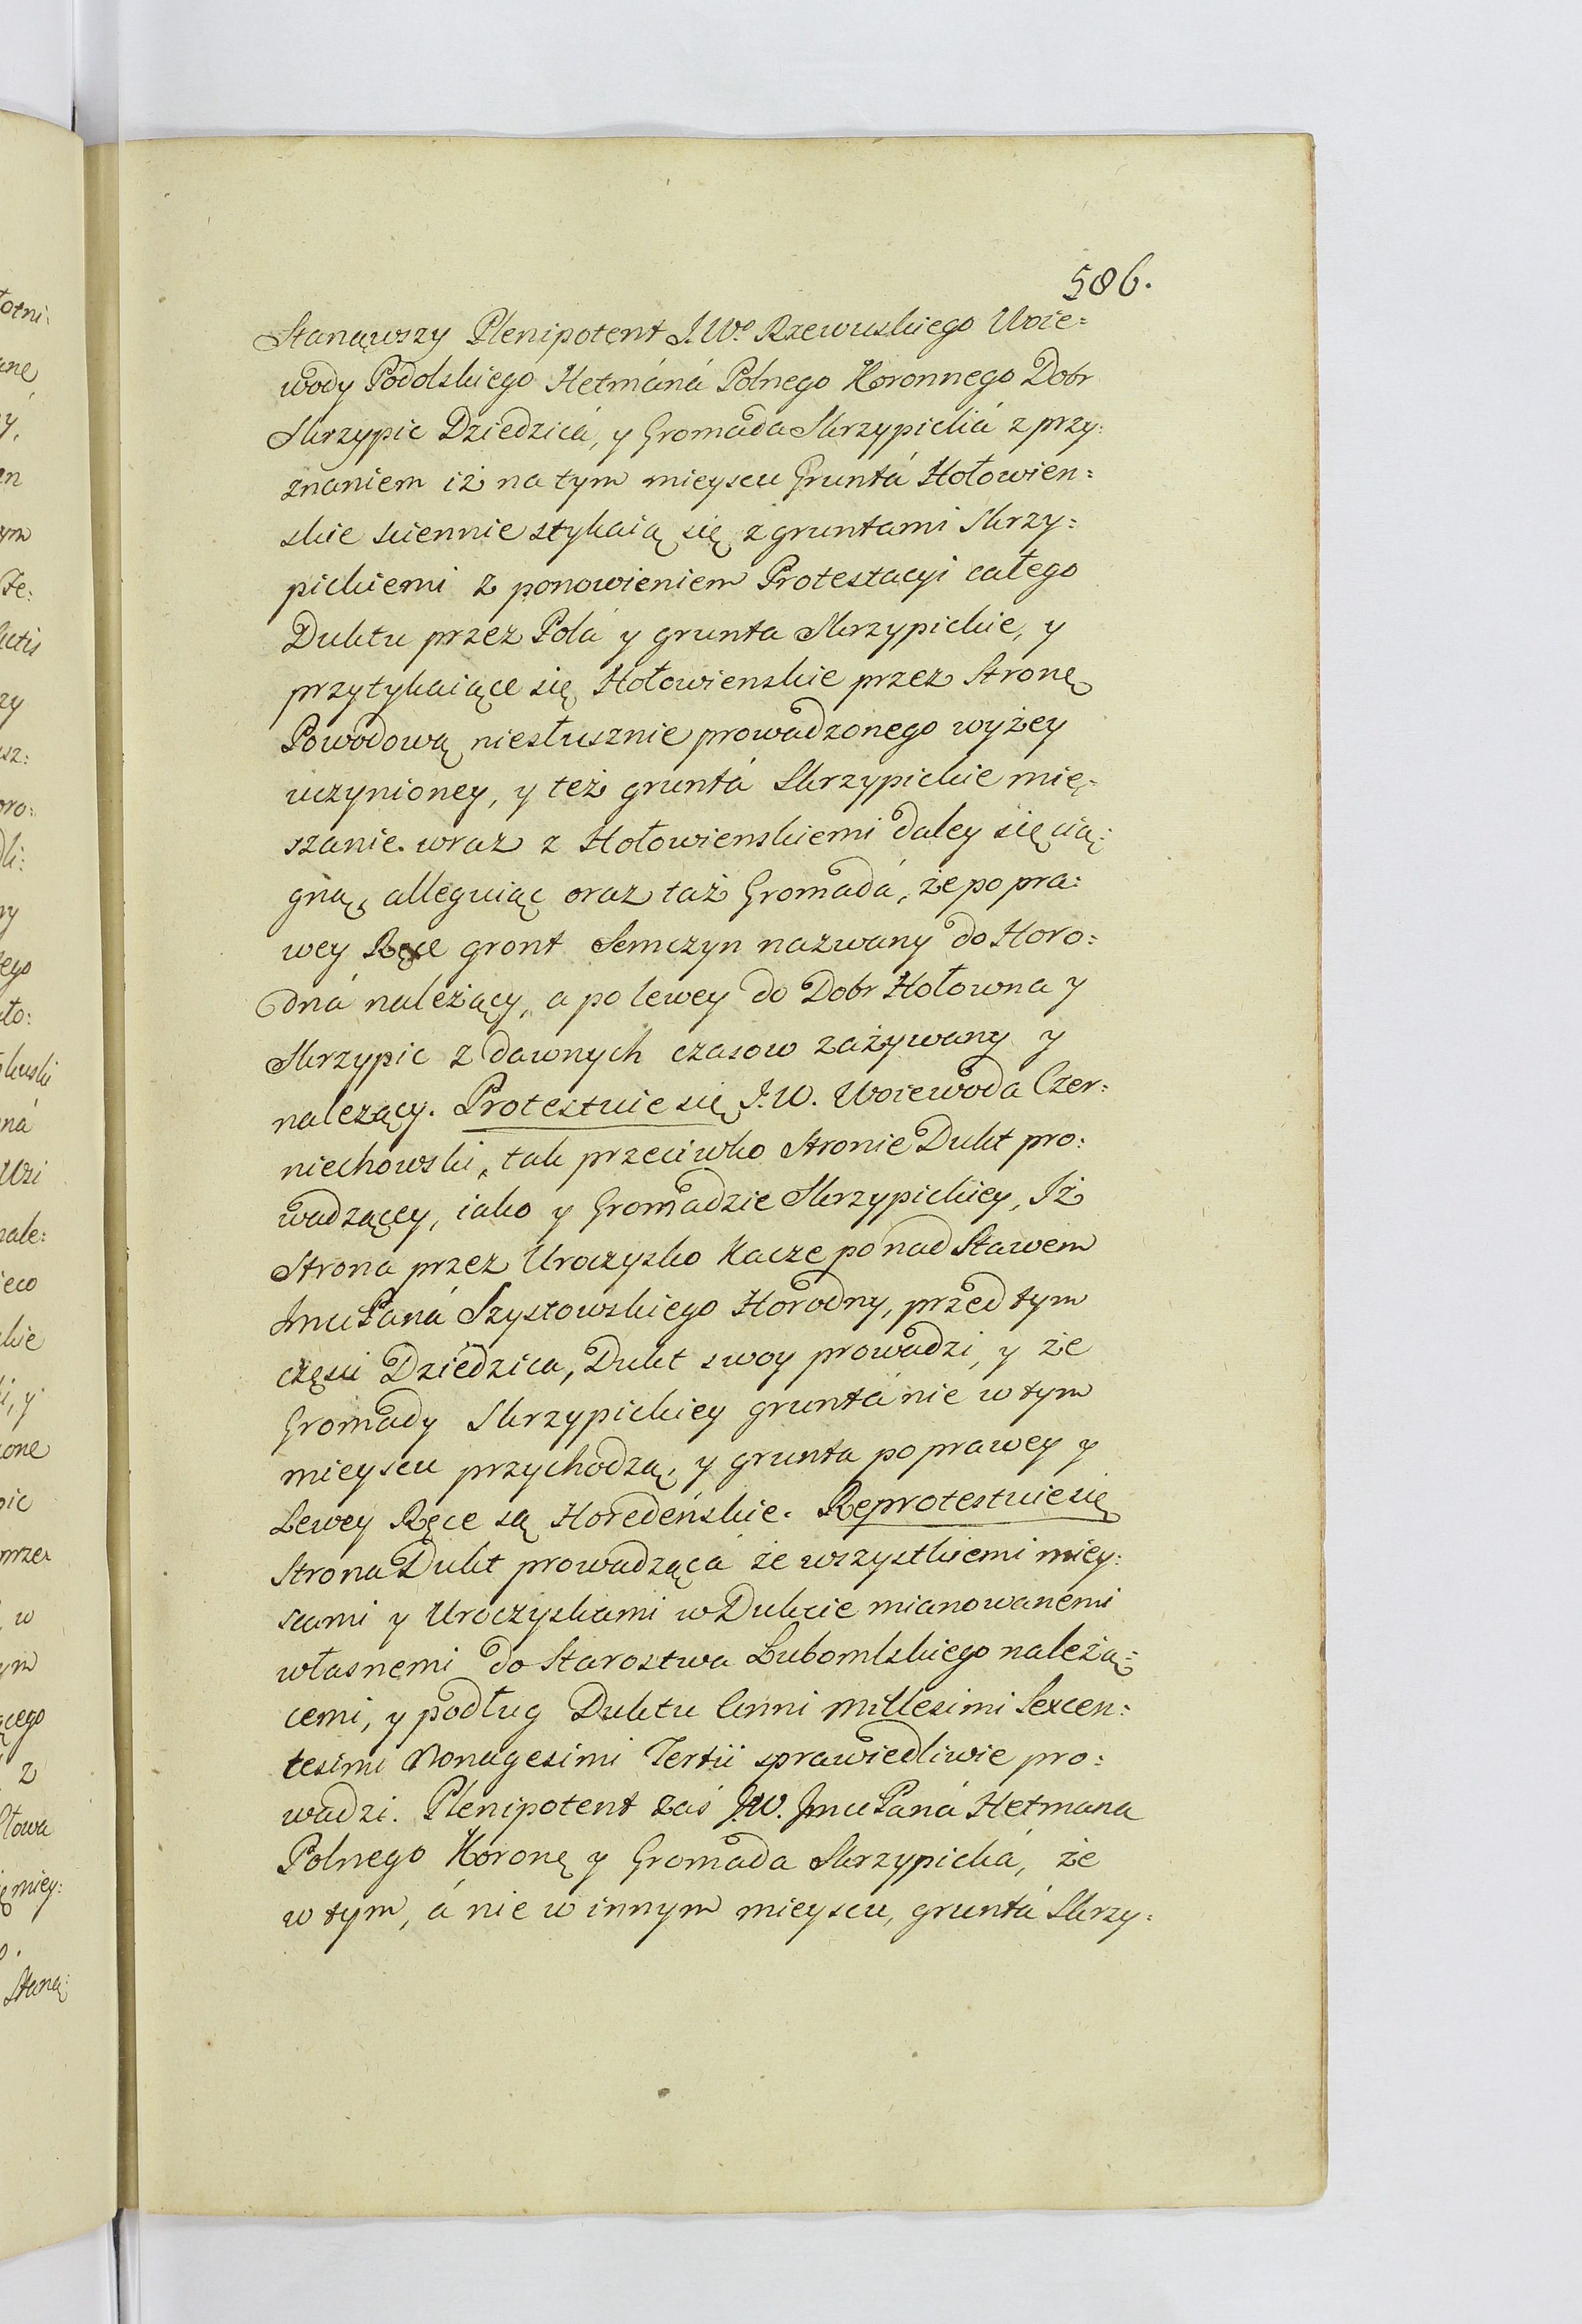 506.
Stanąwszy Plenipotent J.Wo. Rzewuskiego Woie:
wody Podolskiego Hetmáná Polnego Koronnego Dobr
Skrzypic Dziedzicá, y Gromada Skrzypickiá z przy:
znaniem iż na tym mieyscu Gruntá Hołowien:
skie sciennie stykaią się z gruntami Skrzy:
pickiemi z ponowieniem Protestacyi całego
Duktu przez Polá y grunta Skrzypickie, y
przytykaiące się Hołowienskie przez Stronę
Powodową niesłusznie prowadzonego wyżey
uczynioney, y też gruntá Skrzypickie mię:
szanie wraz z Hołowienskiemi daley się cią:
gną, alleguiąc oraz taż Gromadá, że po pra:
wey Ręce gront Semczyn nazwany do Horo:
dná należący, a po lewey do Dobr Hołowna y
Skrzypic z dawnych czasow zażywany y
nalezący. Protestuie się J.W. Woiewoda Czer:
niechowski, tak przeciwko Stronie Dukt pro:
wadzącey, iako y Gromadzie Skrzypickiey, Iż
Strona przez Uroczysko Kacze ponad Stawem
Jmci Paná Szystowskiego Horodny, przed tym
częsci Dziedzica, Dukt swoy prowadzi, y że
Gromady Skrzypickiey gruntá nie w tym
mieyscu przychodzą, y grunta po prawey y
Lewey Ręce są Horedeńskie. Reprotestuie się
Strona Dukt prowadzącá że wszystkiemi miey:
scami y Uroczyskami w Dukcie mianowanemi
własnemi do Starostwa Lubomlskiego należą:
cemi, y podług Duktu Anni Millesimi Sexcen:
tesimi Nonagesimi Tertii sprawiedliwie pro:
wadzi. Plenipotent zaś J.W. Jmci Paná Hetmana
Polnego Koronę y Gromada Skrzypická, że
w tym, á nie w innym mieyscu, gruntá Skrzy: